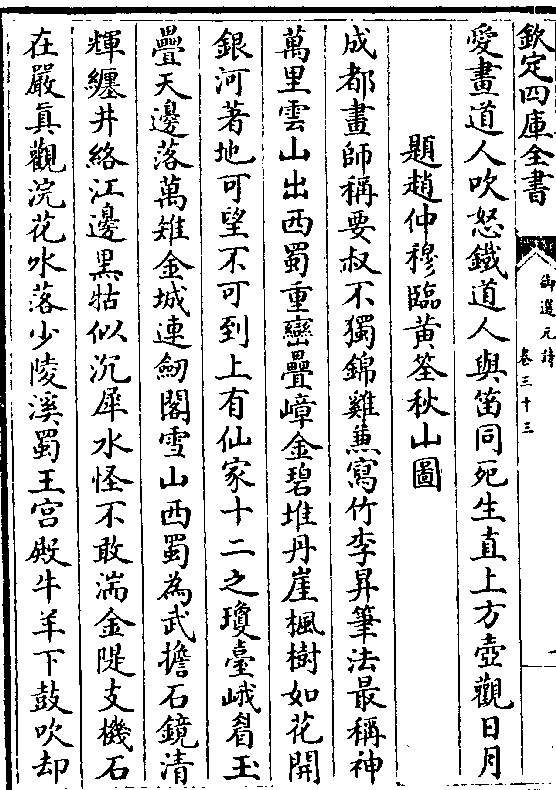 欽定四庫全書
御選元詩
卷三十三
愛畫道人吹怒鐵道人與笛同死生直上方壺觀日月
題趙仲穆臨黃筌秋山圖
成都畫師稱要叔不獨錦雞蕙寫竹李昇筆法最稱神
萬里雲山出西蜀重巒疊嶂金碧堆丹崖楓樹如花開
銀河著地可望不可到上有仙家十二之瓊臺峨眉玉
疊天邊落萬雉金城連劒閣雪山西蜀為武擔石鏡清
輝纏井絡江邊黑牯似沉犀水怪不敢湍金隄支機石
在嚴真觀浣花水落少陵溪蜀王宮殿牛羊下鼓吹却